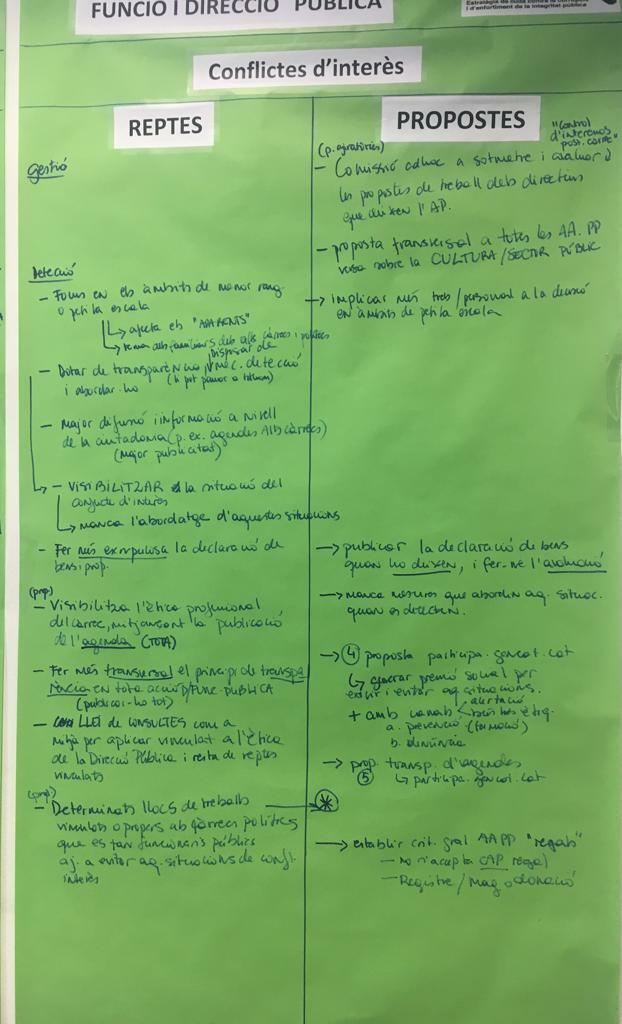 FUNCIÓ I DIRECCIÓ PÚBLICA
i d'enfortiment de la integritat pública
Conflictes d'interès
REPTES
Gestió
Detecció
- Focus en els àmbits de menor rang
o petita escala
↳ afecta els "APARENTS"
↳ tema dels familiars dels alts càrrecs i polítics
disposar de
- Dotar de transparència i mec. detecció
i abordar-ho
- Major difusió i informació a nivell
de la ciutadania (p. ex. agendes Alts càrrecs)
(Major publicitat)
- VISIBILITZAR la situació del
conflicte d'interès
↳ manca l'abordatge d'aquestes situacions
- Fer més escrupulosa la declaració de
béns i prop.
(prop)
- Visibilitza l'ètica professional
del càrrec, mitjançant la publicació
de l'agenda (TOTA)
- Fer més transversal el principi de transpa
rència en tota acció/FUNC. PÚBLICA
(publicar-ho tot)
- LLEI de CONSULTES com a
mitjà per aplicar vinculat a l'Ètica
de la Direcció Pública i resta de reptes
vinculats
(prop)
- Determinats llocs de treball
vinculats o propers als càrrecs polítics
que es facin funcionaris públics
aj. a evitar aq. situacions de confl.
interès
PROPOSTES
"Control
d'interessos
post. càrrec"
(p. giratòries)
- Comissió adhoc a sotmetre i avaluar
les propostes de treball dels directius
que deixen l'AP.
- proposta transversal a totes les AA.PP
versa sobre la CULTURA/SECTOR PÚBLIC
→ implicar més treb/personal a la decisió
en àmbits de petita escala
→ publicar la declaració de béns
quan ho deixen, i fer-ne l'avaluació
→ manca mesures que abordin aq. situac.
quan es detecten.
→ 4 proposta participa.gencat.cat
↳ generar premi social per
exigir i evitar aq. situacions.
+ amb canals alertació
bústies ètiq.
a. prevenció (formació)
b. denúncia
→ prop. transp. d'agendes
5 ↳ participa.gencat.cat
*
→ establir crit. gral AAPP "regals"
- No s'accepta CAP regal
- Registre/Mag o donació